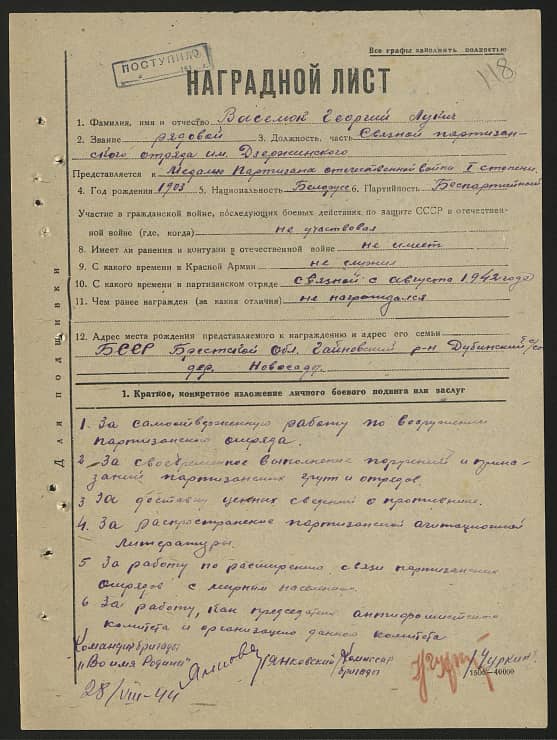 Все графы заполнять полностью
ПОСТУПИЛО
118
НАГРАДНОЙ ЛИСТ
1. Фамилия, имя и отчество Васемон Георгий Лукич
2. Звание рядовой 3. Должность, часть Связной партизан-
ского отряда им. Дзержинского
Представляется к Медалью Партизана отечественной войны I степени.
4. Год рождения 1903 5. Национальность Белорус 6. Партийность Беспартийный
Участие в гражданской войне, последующих боевых действиях по защите СССР и отечествен-
ной войне (где, когда) не участвовал
8. Имеет ли ранения и контузии в отечественной войне не имеет
9. С какого времени в Красной Армии не служил
10. С какого времени в партизанском отряде связной с августа 1942 года
11. Чем ранее награжден (за какия отличия) не награждался
12. Адрес места рождения представляемого к награждению и адрес его семьи
БССР Брестской Обл. Гайновский р-н Дубинский с/со
дер. Новосады
Для подшивки
1. Краткое, конкретное изложение личного боевого подвига или заслуг
1. За самоотверженную работу по вооружению
партизанского отряда.
2. За своевременное выполнение поручений и прика-
заний партизанских групп и отрядов.
3 За доставку ценных сведений о противнике.
4. За распространение партизанской агитационной
литературы.
5 За работу по расширению связи партизанских
отрядов с мирным населением.
6 За работу, как председателя антифашистского
комитета и организацию данного комитета
Командир бригады
"Во имя Родины"
/Янковский/
Комиссар
бригады
/Чуркин/
28/VIII-44
1500—40000